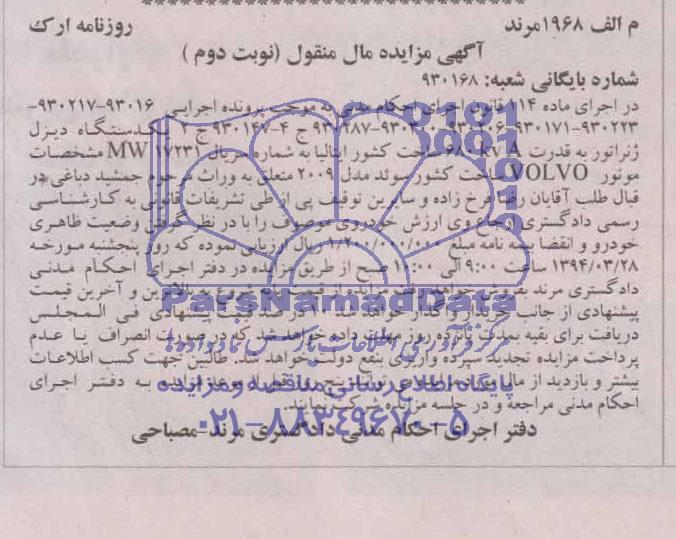 م الف ۱۹۶۸مرند روزنامه ارک
آگهی مزایده مال منقول (نوبت دوم )
شماره بایگانی شعبه: ۹۳۰۱۶۸
در اجرای ماده ۱۱۴ قانون اجرای احکام مدنی به موجب پرونده اجرایی ۹۳۰۱۶-۹۳۰۲۱۷-
۹۳۰۲۲۳-۹۳۰۱۷۱- ۹۳۰۲۸۷- ج ۴-۹۳۰۱۴۷ ج ۲ یکدستگاه دیزل
ژنراتور به قدرت kv A ساخت کشور ایتالیا به شماره سریال MW ۱۷۲۳۱ مشخصات
موتور VOLVO ساخت کشور سوئد مدل ۲۰۰۹ متعلق به وراث مرحوم جمشید دباغی در
قبال طلب آقایان رضا فرخ زاده و سایرین توقیف پی از طی تشریفات قانونی به کارشناسی
رسمی دادگستری ارجاع وی ارزش خودروی موصوف را با در نظر گرفتن وضعیت ظاهری
خودرو و انقضا بیمه نامه مبلغ ۱/۲۰۰/۰۰۰/۰۰۰ ریال ارزیابی نموده که روز پنجشنبه مورخه
۱۳۹۴/۰۳/۲۸ ساعت ۹:۰۰ الی ۱۰:۰۰ صبح از طریق مزایده در دفتر اجرای احکام مدنی
دادگستری مرند بفروش خواهد رفت مزایده از قیمت پایه شروع به بالاترین و آخرین قیمت
پیشنهادی از جانب خریدار واگذار خواهد شد ۱۰ درصد قیمت پیشنهادی فی المجلس
دریافت برای بقیه بمدت پانزده روز مهلت داده خواهد شد که در صورت انصراف یا عدم
پرداخت مزایده تجدید سپرده واریزی بنفع دولت خواهد شد. طالبین جهت کسب اطلاعات
بیشتر و بازدید از مال پنج روز قبل از به دفتر اجرای
احکام مدنی مراجعه و در جلسه مزایده شرکت نمایند.
دفتر اجرای احکام مدنی دادگستری مرند-مصباحی
ParsNamadData
مرکز فرآوری اطلاعات پارس نماد داده ها
پایگاه اطلاع رسانی مناقصه و مزایده
۰۲۱-۸۸۳۴۹۶۷۰-۵